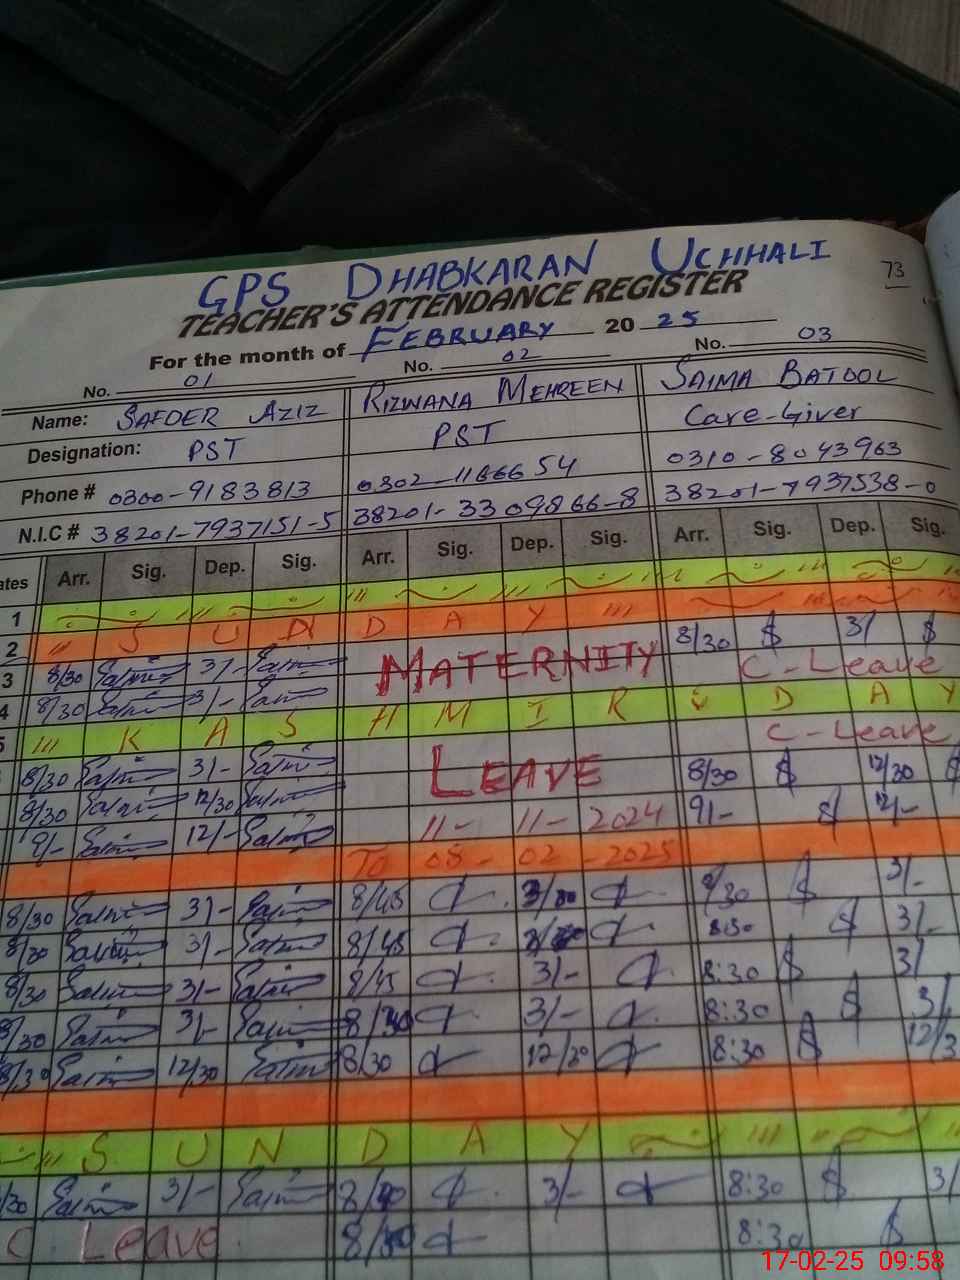 GPS DHABKARAN UCHHALI
73
TEACHER'S ATTENDANCE REGISTER
For the month of FEBRUARY 20 25
No. 01 No. 02 No. 03
Name: SAFDER AZIZ RIZWANA MEHREEN SAIMA BATOOL
Designation: PST PST Care-Giver
Phone # 0300-9183813 0302-1166654 0310-8043963
N.I.C # 38201-7937151-5 38201-3309866-8 38201-7937538-0
ates Arr. Sig. Dep. Sig. Arr. Sig. Dep. Sig. Arr. Sig. Dep. Sig.
1
2 S U N D A Y
3 8/30 3/- MATERNITY 8/30 3/
4 8/30 3/- C-Leave
5 K A S H M I R D A Y
8/30 3/- LEAVE C-Leave
8/30 12/30 8/30 12/30
9/- 12/- 11- 11- 2024 9/- 12/-
To 08-02-2025
8/30 3/- 8/45 3/30 3/-
8/30 3/- 8/45 8:30 3/-
8/30 3/- 8/45 3/- 8:30 3/
8/30 3/- 3/- 8:30 3/
8/30 12/30 8/30 12/30 8:30 12/3
S U N D A Y
/30 3/- 3/- 8:30 3/
C Leave 8:30
17-02-25 09:58